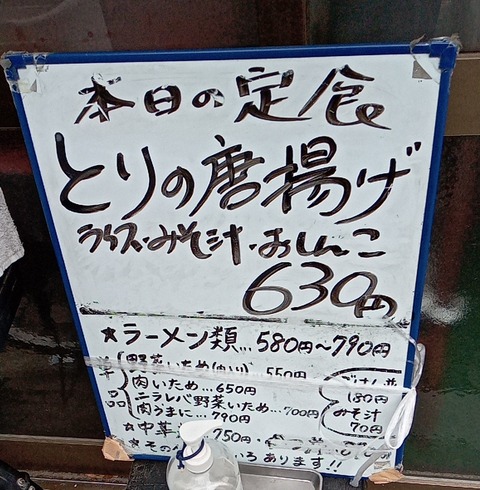 本日の定食
とりの唐揚げ
ライス・みそ汁・おしんこ
630円
★ラーメン類…580円〜790円
野菜いため(肉入り) 550円
肉いため…650円
ニラレバ野菜いため…700円
肉うまに…790円
単品
ごはん並
180円
みそ汁
70円
★中華
750円
★その
いろあります!!